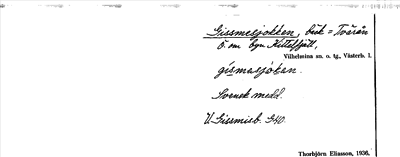 Gissmesjokken, bäck = Tvärån
Ö. om byn Kittelfjäll,
Vilhelmina sn. o. tg., Västerb. l.
gismesjåkan.
Svensk medd.
U. Gissmieb. S40.
Thorbjörn Eliasson, 1936.